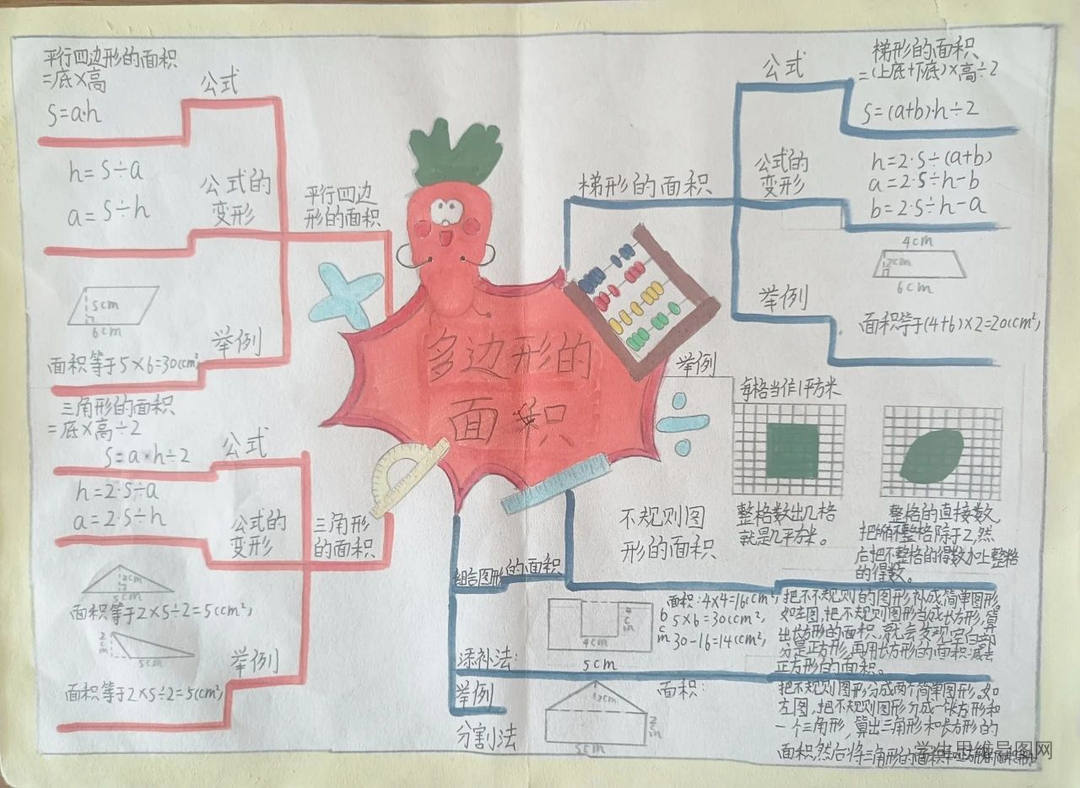 多边形的
面积
平行四边形的面积
=底×高
公式
S=a·h
h=S÷a
a=S÷h
公式的
变形
平行四边
形的面积
5cm
6cm
举例
面积等于5×6=30(cm²)
三角形的面积
=底×高÷2
公式
S=a×h÷2
h=2·S÷a
a=2·S÷h
公式的
变形
三角形
的面积
2cm
5cm
面积等于2×5÷2=5(cm²)
2cm
5cm
举例
面积等于2×5÷2=5(cm²)
梯形的面积
公式
梯形的面积
=(上底+下底)×高÷2
S=(a+b)·h÷2
公式的
变形
h=2·S÷(a+b)
a=2·S÷h-b
b=2·S÷h-a
4cm
2cm
6cm
举例
面积等于(4+6)×2=20(cm²)
举例
每格当作1平方米
不规则图
形的面积
整格数出几格
就是几平方米。
整格的直接数,
把所有不整格除于2,然
后把不整格的得数加上整格
的得数。
组合图形的面积
添补法:
4cm
5cm
6cm
面积:4×4=16(cm²)
5×6=30(cm²)
30-16=14(cm²)
把不规则的图形补成简单图形,
如左图,把不规则图形当成长方形,算
出长方形的面积,就会发现空白部
分是正方形,再用长方形的面积减去
正方形的面积。
举例
分割法
2cm
5cm
面积:
把不规则图形分成两个简单图形,如
左图,把不规则图形分成一长方形和
一个三角形,算出三角形和长方形的
面积,然后将三角形的面积
学生思维导图网